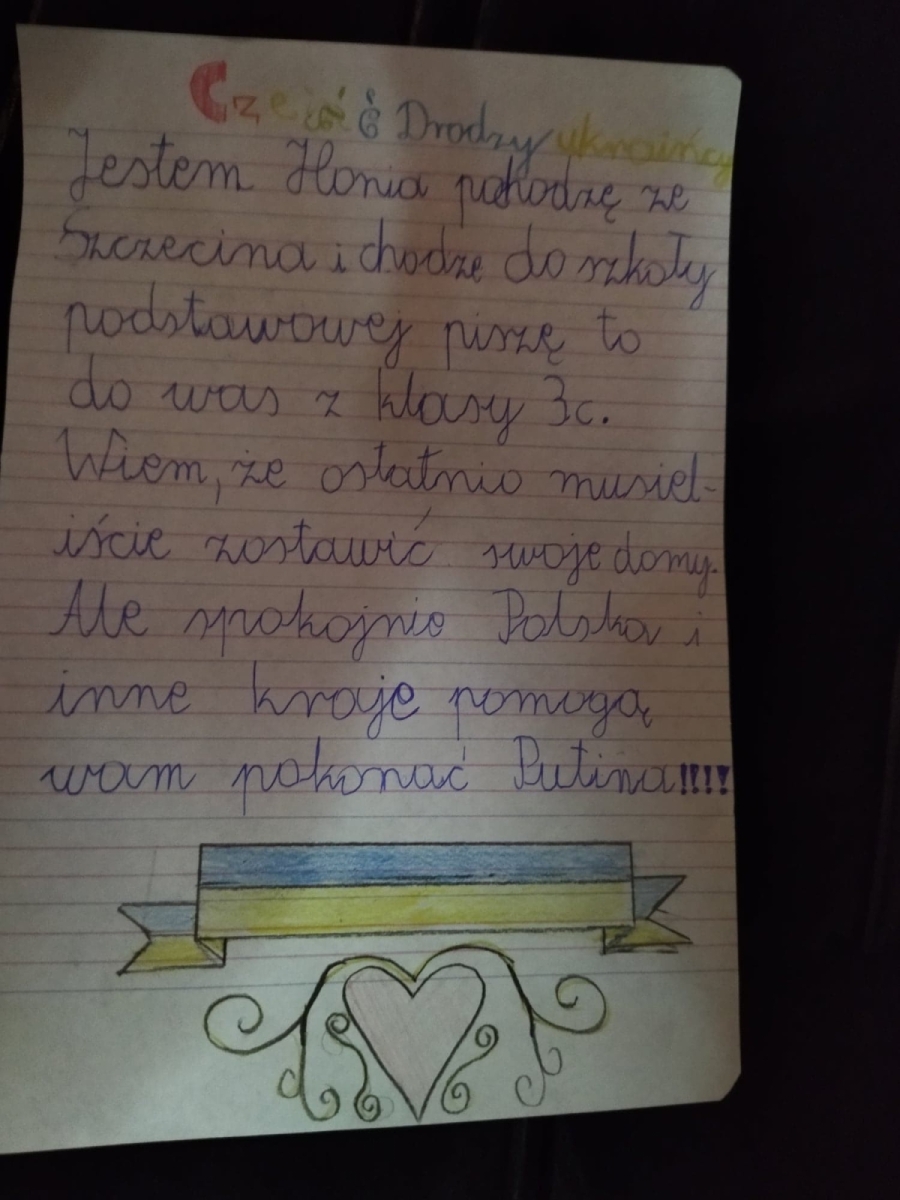 Cześć Drodzy ukraińcy
Jestem Hania pochodzę ze
Szczecina i chodzę do szkoły
podstawowej piszę to
do was z klasy 3c.
Wiem, że ostatnio musiel-
iście zostawić swoje domy.
Ale spokojnie Polska i
inne kraje pomogą
wam pokonać Putina!!!!